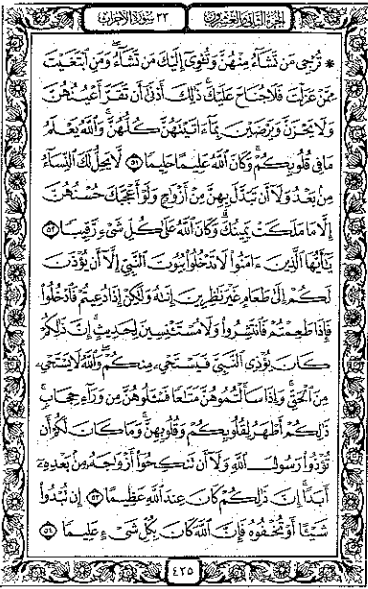 الجزء الثاني والعشرون ٣٣ سورة الأحزاب
* تُرْجِى مَن تَشَآءُ مِنْهُنَّ وَتُـْٔوِىٓ إِلَيْكَ مَن تَشَآءُ وَمَنِ ٱبْتَغَيْتَ
مِمَّنْ عَزَلْتَ فَلَا جُنَاحَ عَلَيْكَ ذَٰلِكَ أَدْنَىٰٓ أَن تَقَرَّ أَعْيُنُهُنَّ
وَلَا يَحْزَنَّ وَيَرْضَيْنَ بِمَآ ءَاتَيْتَهُنَّ كُلُّهُنَّ وَٱللَّهُ يَعْلَمُ
مَا فِى قُلُوبِكُمْ وَكَانَ ٱللَّهُ عَلِيمًا حَلِيمًا ٥١ لَّا يَحِلُّ لَكَ ٱلنِّسَآءُ
مِنۢ بَعْدُ وَلَآ أَن تَبَدَّلَ بِهِنَّ مِنْ أَزْوَٰجٍ وَلَوْ أَعْجَبَكَ حُسْنُهُنَّ
إِلَّا مَا مَلَكَتْ يَمِينُكَ وَكَانَ ٱللَّهُ عَلَىٰ كُلِّ شَىْءٍ رَّقِيبًا ٥٢
يَـٰٓأَيُّهَا ٱلَّذِينَ ءَامَنُوا۟ لَا تَدْخُلُوا۟ بُيُوتَ ٱلنَّبِىِّ إِلَّآ أَن يُؤْذَنَ
لَكُمْ إِلَىٰ طَعَامٍ غَيْرَ نَـٰظِرِينَ إِنَىٰهُ وَلَـٰكِنْ إِذَا دُعِيتُمْ فَٱدْخُلُوا۟
فَإِذَا طَعِمْتُمْ فَٱنتَشِرُوا۟ وَلَا مُسْتَـْٔنِسِينَ لِحَدِيثٍ إِنَّ ذَٰلِكُمْ
كَانَ يُؤْذِى ٱلنَّبِىَّ فَيَسْتَحْىِۦ مِنكُمْ وَٱللَّهُ لَا يَسْتَحْىِۦ
مِنَ ٱلْحَقِّ وَإِذَا سَأَلْتُمُوهُنَّ مَتَـٰعًا فَسْـَٔلُوهُنَّ مِن وَرَآءِ حِجَابٍ
ذَٰلِكُمْ أَطْهَرُ لِقُلُوبِكُمْ وَقُلُوبِهِنَّ وَمَا كَانَ لَكُمْ أَن
تُؤْذُوا۟ رَسُولَ ٱللَّهِ وَلَآ أَن تَنكِحُوٓا۟ أَزْوَٰجَهُۥ مِنۢ بَعْدِهِۦٓ
أَبَدًا إِنَّ ذَٰلِكُمْ كَانَ عِندَ ٱللَّهِ عَظِيمًا ٥٣ إِن تُبْدُوا۟
شَيْـًٔا أَوْ تُخْفُوهُ فَإِنَّ ٱللَّهَ كَانَ بِكُلِّ شَىْءٍ عَلِيمًا ٥٤
٤٢٥